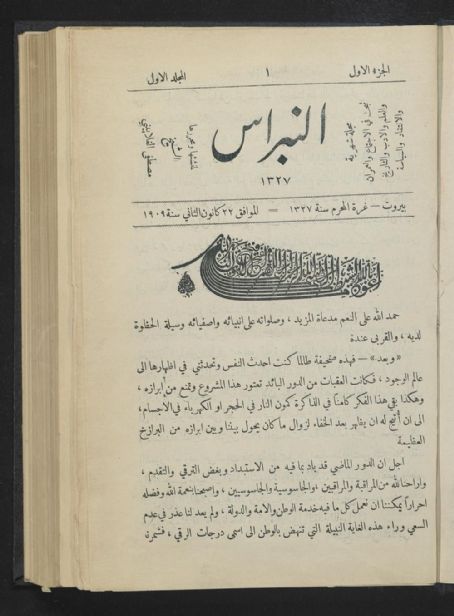 الجزء الاول ١ المجلد الاول
النبراس
١٣٢٧
مجلة شهرية
تبحث في الاجتماع والعمران
والعلم والادب والتاريخ
والانتقاد والسياسة
لمنشئها ومحررها
الشيخ
مصطفى الغلاييني
بيروت — غرة المحرم سنة ١٣٢٧ = الموافق ٢٢ كانون الثاني سنة ١٩٠٩
حمد الله على النعم مدعاة المزيد ، وصلواته على انبيائه واصفيائه وسيلة الحظوة
لديه ، والقربى عنده
«وبعد» — فهذه صحيفة طالما كنت احدث النفس وتحدثني في اظهارها الى
عالم الوجود ، فكانت العقبات من الدور البائد تعتور هذا المشروع وتمنع من ابرازه ،
وهكذا بقي هذا الفكر كامناً في الذاكرة كمون النار في الحجر او الكهرباء في الاجسام ،
الى ان أُتيح له ان يظهر بعد الخفاء لزوال ما كان يحول بيننا وبين ابرازه من البرازخ
العظيمة
اجل ان الدور الماضي قد باد بما فيه من الاستبداد وبغض الترقي والتقدم ،
واراحنا الله من المراقبة والمراقبين ، والجاسوسية والجاسوسيين ، واصبحنا بنعمة الله وفضله
احراراً يمكننا ان نعمل كل ما فيه خدمة الوطن والامة والدولة ، ولم يعد لنا عذر في عدم
السعي وراء هذه الغاية النبيلة التي تنهض بالوطن الى اسمى درجات الرقي ، فشمرنا